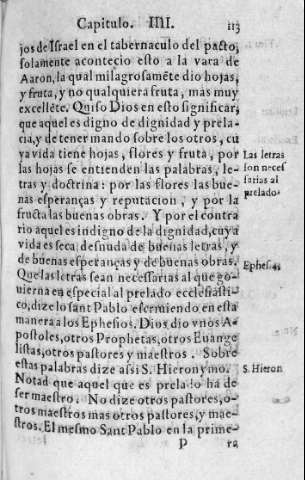 Capitulo. IIII. 113
jos de Israel en el tabernaculo del pacto,
solamente acontecio esto a la vara de
Aaron, la qual milagrosamẽte dio hojas,
y fruta, y no qualquiera fruta, mas muy
excellẽte. Quiso Dios en esto significar,
que aquel es digno de dignidad y prela-
cia, y de tener mando sobre los otros, cu
ya vida tiene hojas, flores y fruta, por
las hojas se entienden las palabras, le-
tras y doctrina: por las flores las bue-
nas esperanças y reputacion, y por la
fructa las buenas obras. Y por el contra
rio aquel es indigno de la dignidad, cuya
vida es seca, desnuda de buenas letras, y
de buenas esperanças y de buenas obras.
Que las letras sean necessarias al que go-
uierna en especial al prelado ecclesiasti-
co, dize lo sant Pablo escriuiendo en esta
manera a los Ephesios. Dios dio vnos A-
postoles, otros Prophetas, otros Euange
listas, otros pastores y maestros. Sobre
estas palabras dize assi S. Hieronymo.
Notad que aquel que es prelado há de
ser maestro. No dize otros pastores, o-
tros maestros mas otros pastores, y mae-
stros. El mesmo Sant Pablo en la prime-
P ra
Las letras
son neces
sarias al
prelado.
Ephes. 4.
S. Hieron